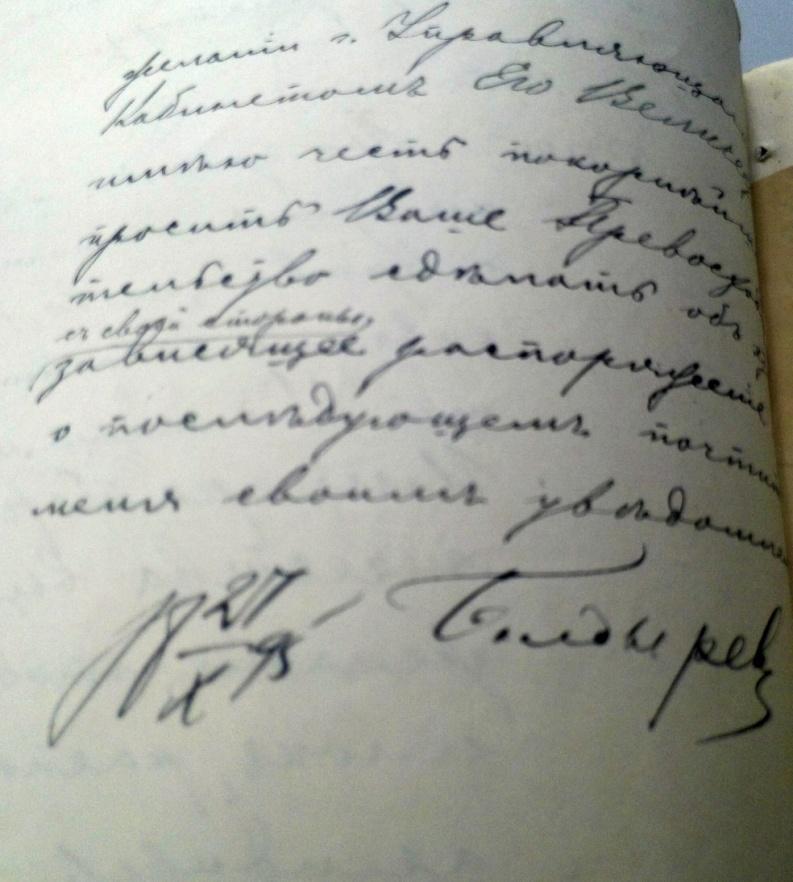 желанiи г. Управляющаго
Кабинетомъ Его Велич
имѣю честь покорнѣйше
просить Ваше Превосхо
тельство сдѣлать объ
съ своей стороны,
зависящее распоряжение
о послѣдующемъ почтить
меня своимъ увѣдомле
27
X 95
Болдырев